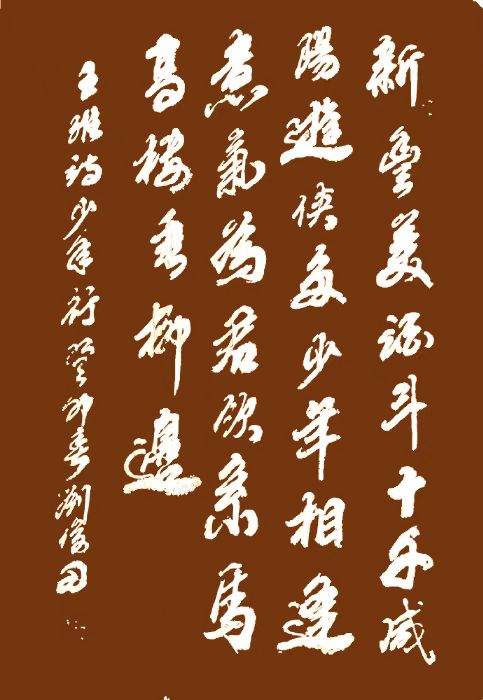 新豐美酒斗十千咸
陽遊俠多少年相逢
意氣為君飲系馬
高樓垂柳邊
王維詩少年行癸卯春劉俊